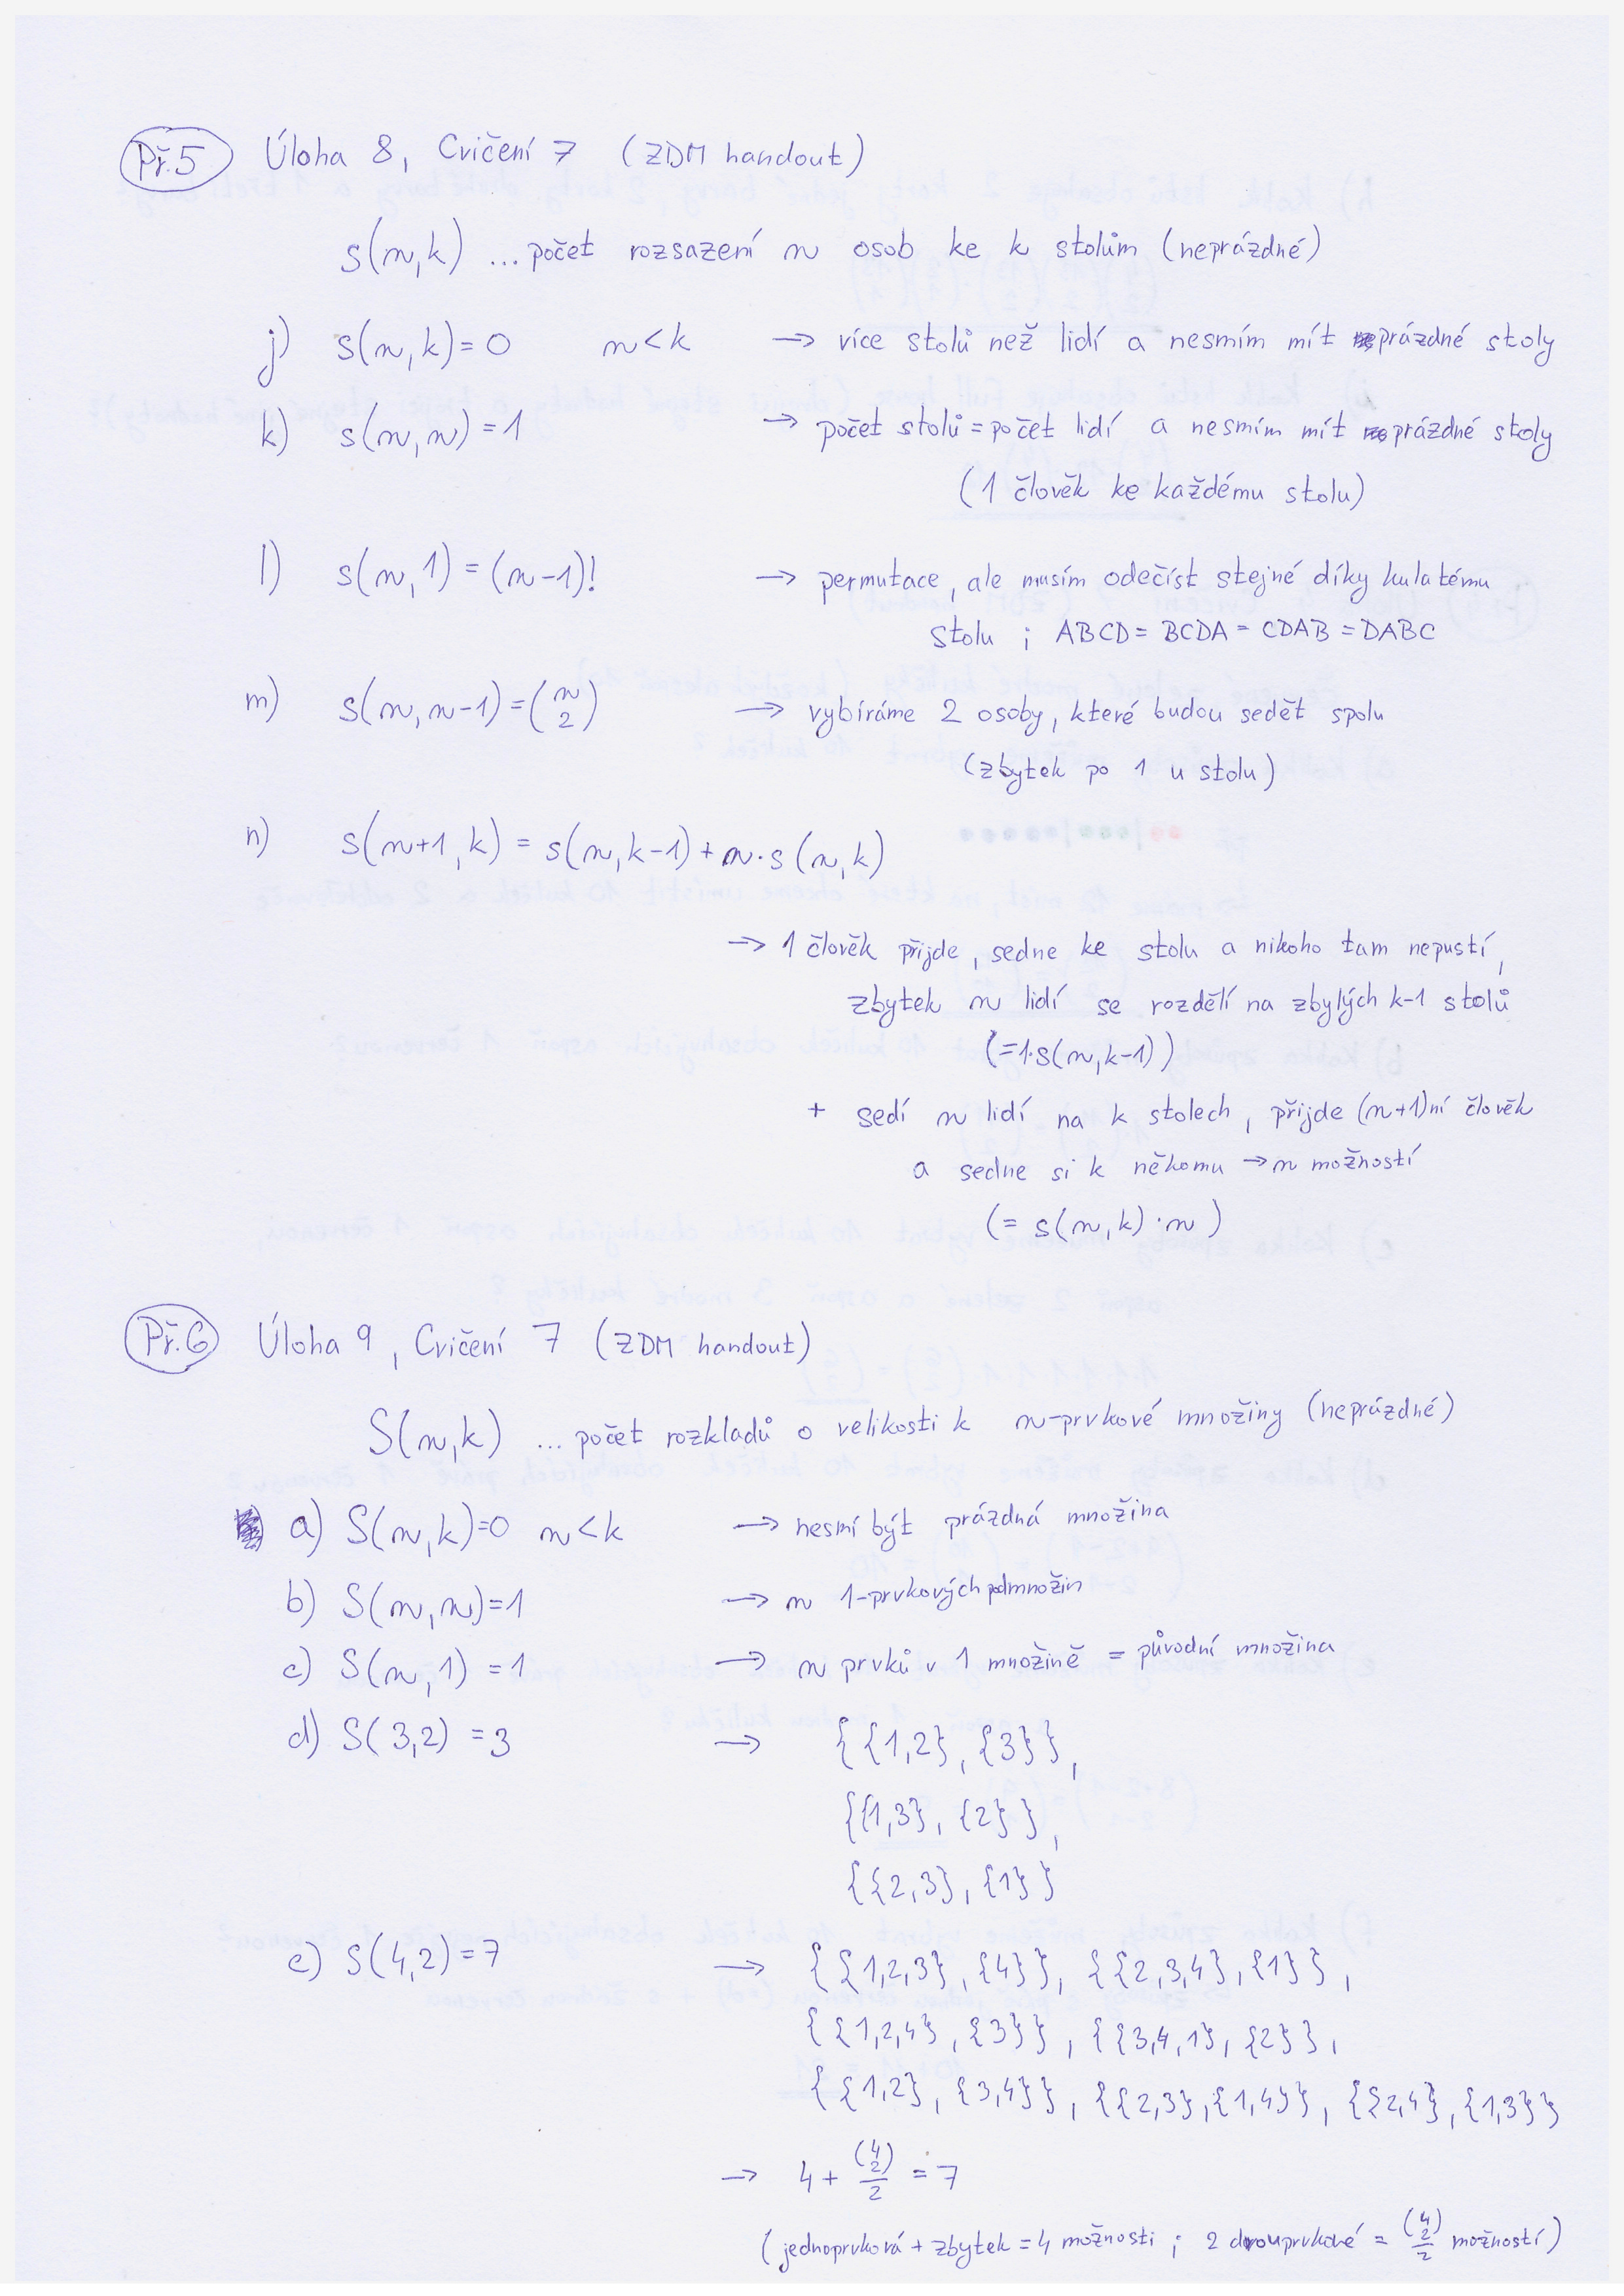 Př.5 Úloha 8, Cvičení 7 (ZDM handout)
s(n,k) ... počet rozsazení n osob ke k stolům (neprázdné)
j) s(n,k)=0 n<k → více stolů než lidí a nesmím mít prázdné stoly
k) s(n,n)=1 → počet stolů = počet lidí a nesmím mít prázdné stoly
(1 člověk ke každému stolu)
l) s(n,1)=(n-1)! → permutace, ale musím odečíst stejné díky kulatému
stolu ; ABCD = BCDA = CDAB = DABC
m) s(n,n-1)=(n 2) → vybíráme 2 osoby, které budou sedět spolu
(zbytek po 1 u stolu)
n) s(n+1,k) = s(n,k-1)+n·s(n,k)
→ 1 člověk přijde, sedne ke stolu a nikoho tam nepustí,
zbytek n lidí se rozdělí na zbylých k-1 stolů
(=1·s(n,k-1))
+ sedí n lidí na k stolech, přijde (n+1)ní člověk
a sedne si k někomu → n možností
(= s(n,k)·n)
Př.6 Úloha 9, Cvičení 7 (ZDM handout)
S(n,k) ... počet rozkladů o velikosti k n-prvkové množiny (neprázdné)
a) S(n,k)=0 n<k → nesmí být prázdná množina
b) S(n,n)=1 → n 1-prvkových podmnožin
c) S(n,1)=1 → n prvků v 1 množině = původní množina
d) S(3,2)=3 → {{1,2},{3}},
{{1,3},{2}},
{{2,3},{1}}
e) S(4,2)=7 → {{1,2,3},{4}}, {{2,3,4},{1}},
{{1,2,4},{3}}, {{3,4,1},{2}},
{{1,2},{3,4}}, {{2,3},{1,4}}, {{2,4},{1,3}}
→ 4 + (4 2)/2 = 7
(jednoprvková + zbytek = 4 možnosti ; 2 dvouprvkové = (4 2)/2 možností)